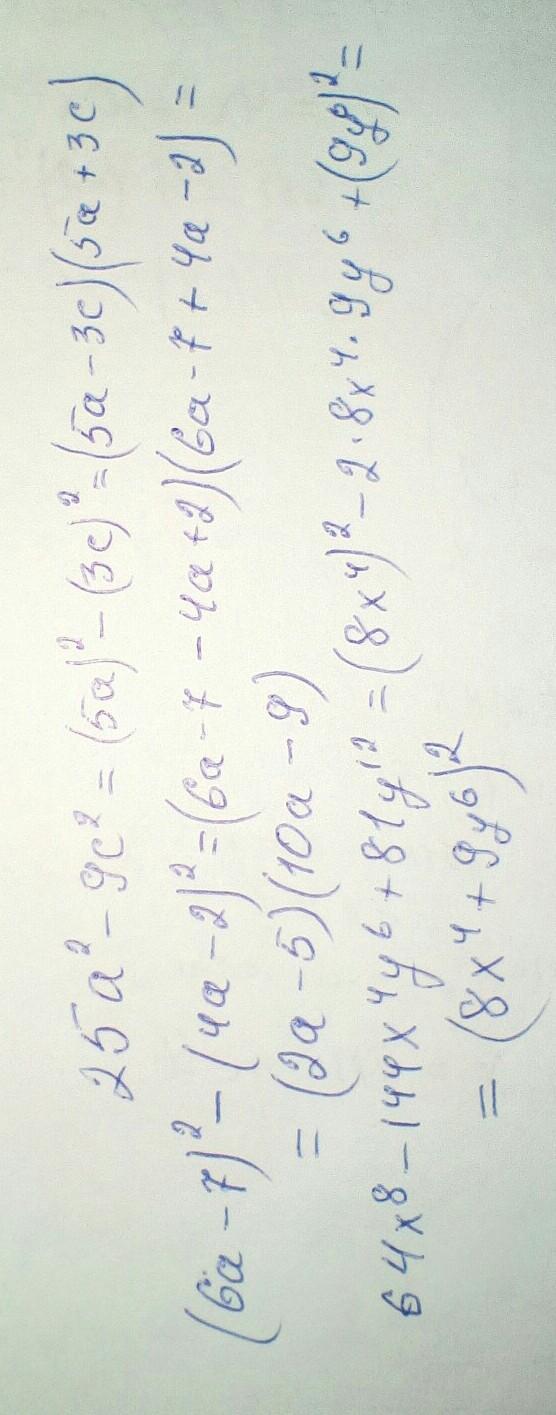 25a² - 9c² = (5a)² - (3c)² = (5a - 3c)(5a + 3c)
(6a - 7)² - (4a - 2)² = (6a - 7 - 4a + 2)(6a - 7 + 4a - 2) =
= (2a - 5)(10a - 9)
64x⁸ - 144x⁴y⁶ + 81y¹² = (8x⁴)² - 2·8x⁴·9y⁶ + (9y⁶)² =
= (8x⁴ + 9y⁶)²